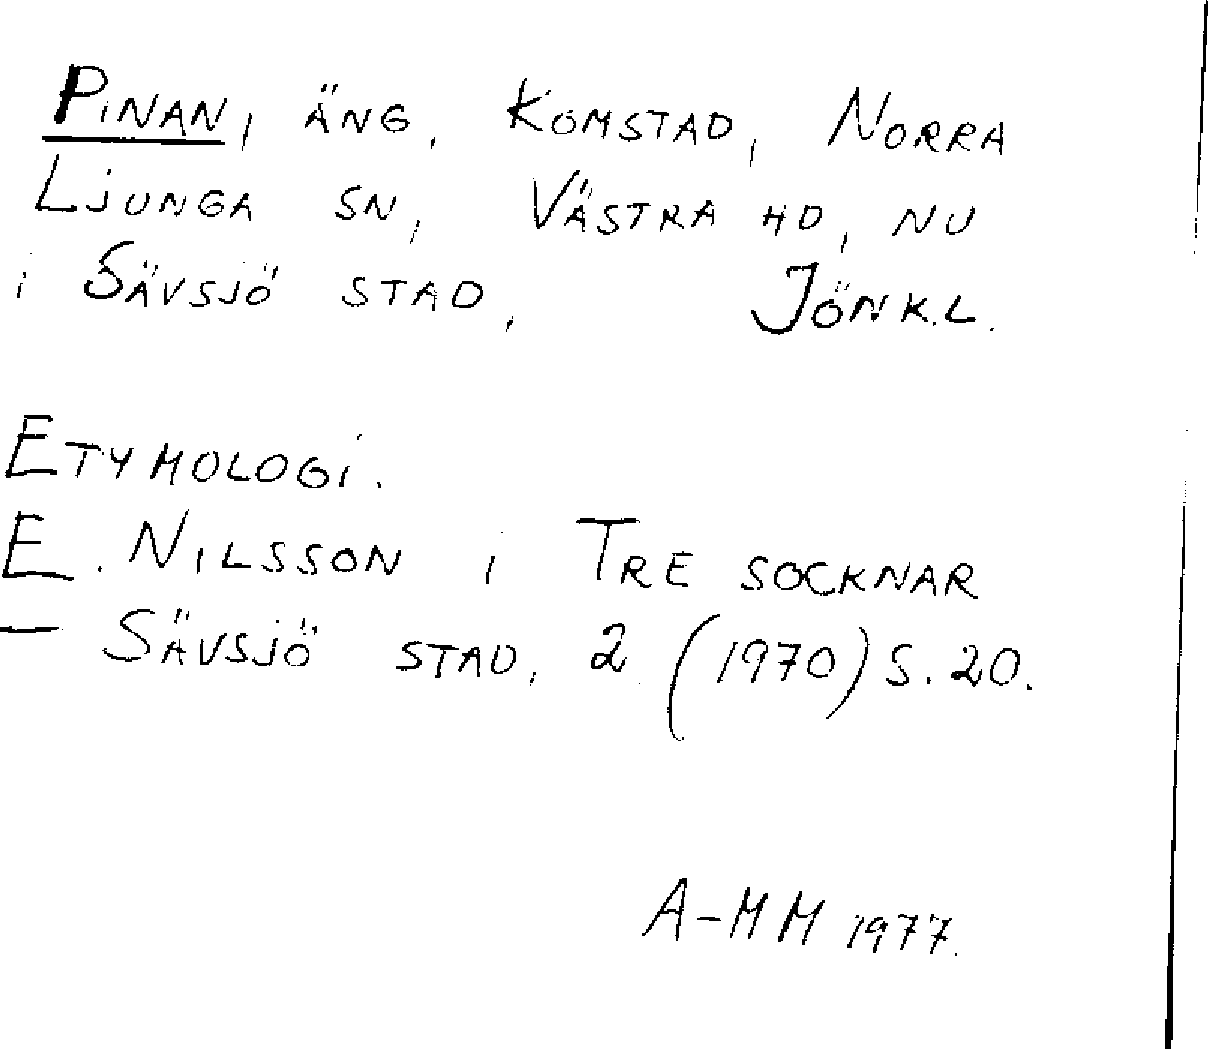 Pinan, äng, Komstad, Norra
Ljunga sn, Västra hd, nu
i Sävsjö stad, Jönk.l.
Etymologi.
E. Nilsson i Tre socknar
– Sävsjö stad, 2 (1970) s. 20.
A-MM 1977.